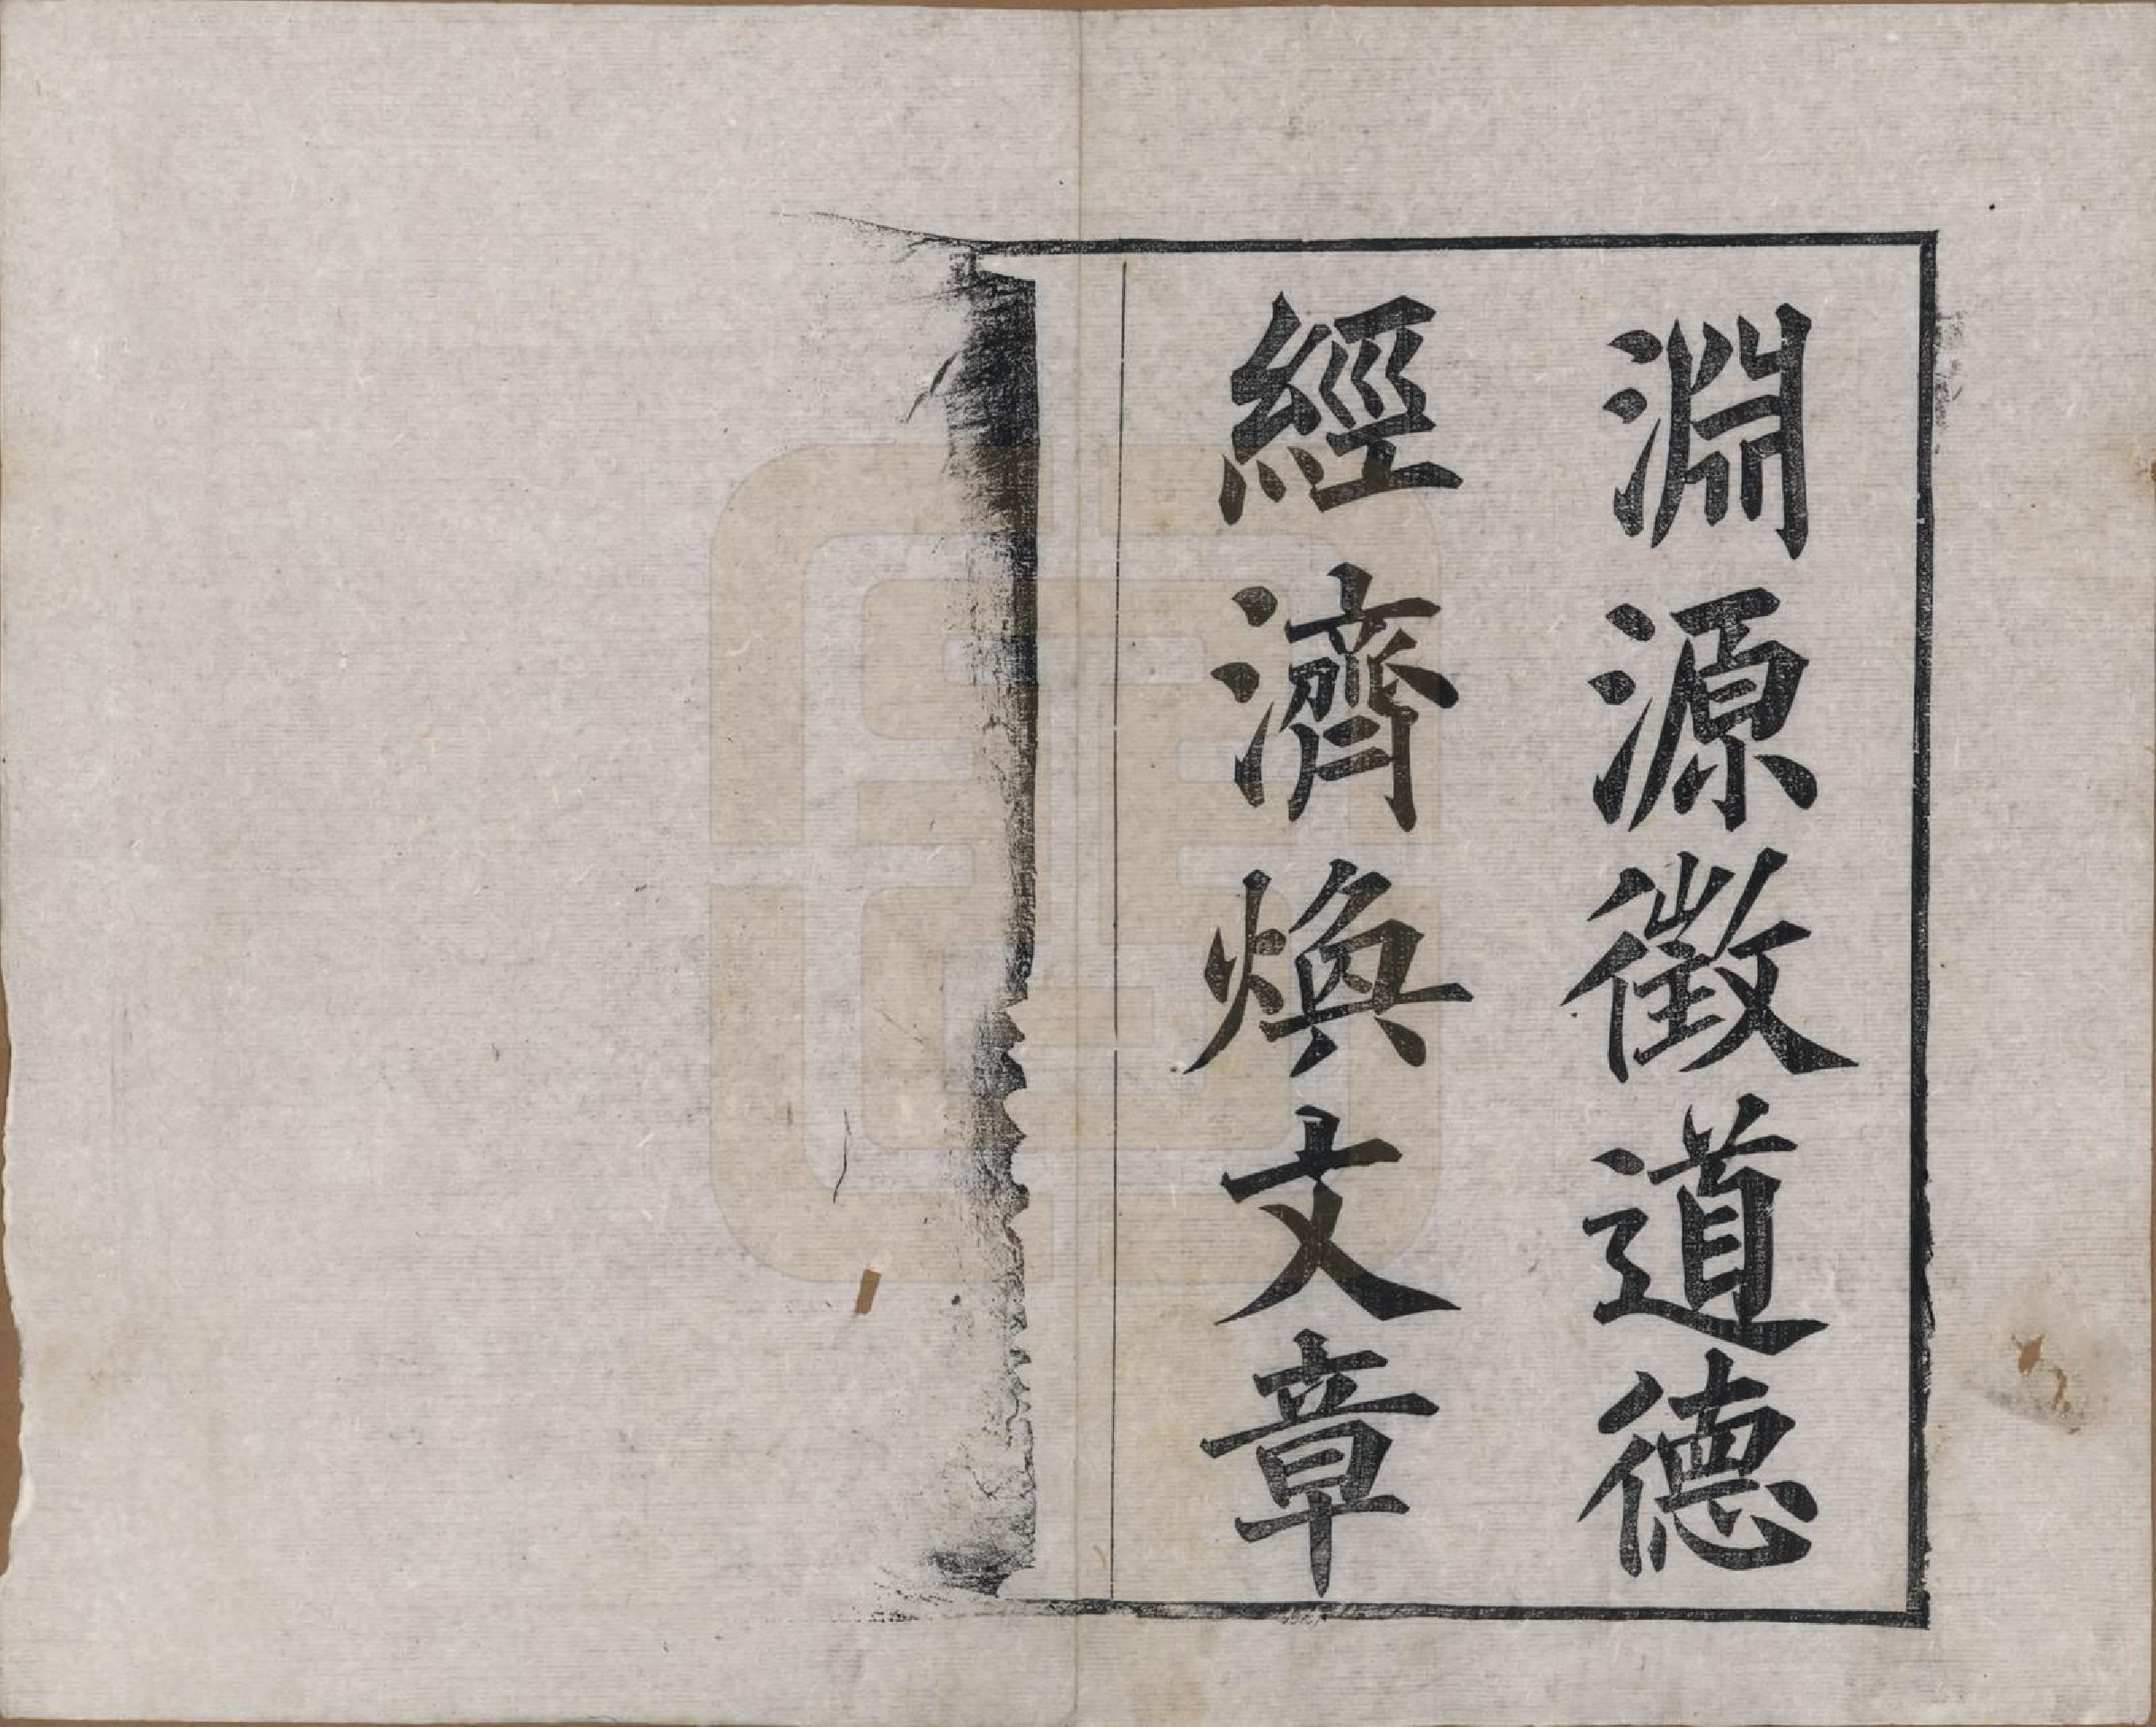 淵源徵道德
經濟煥文章